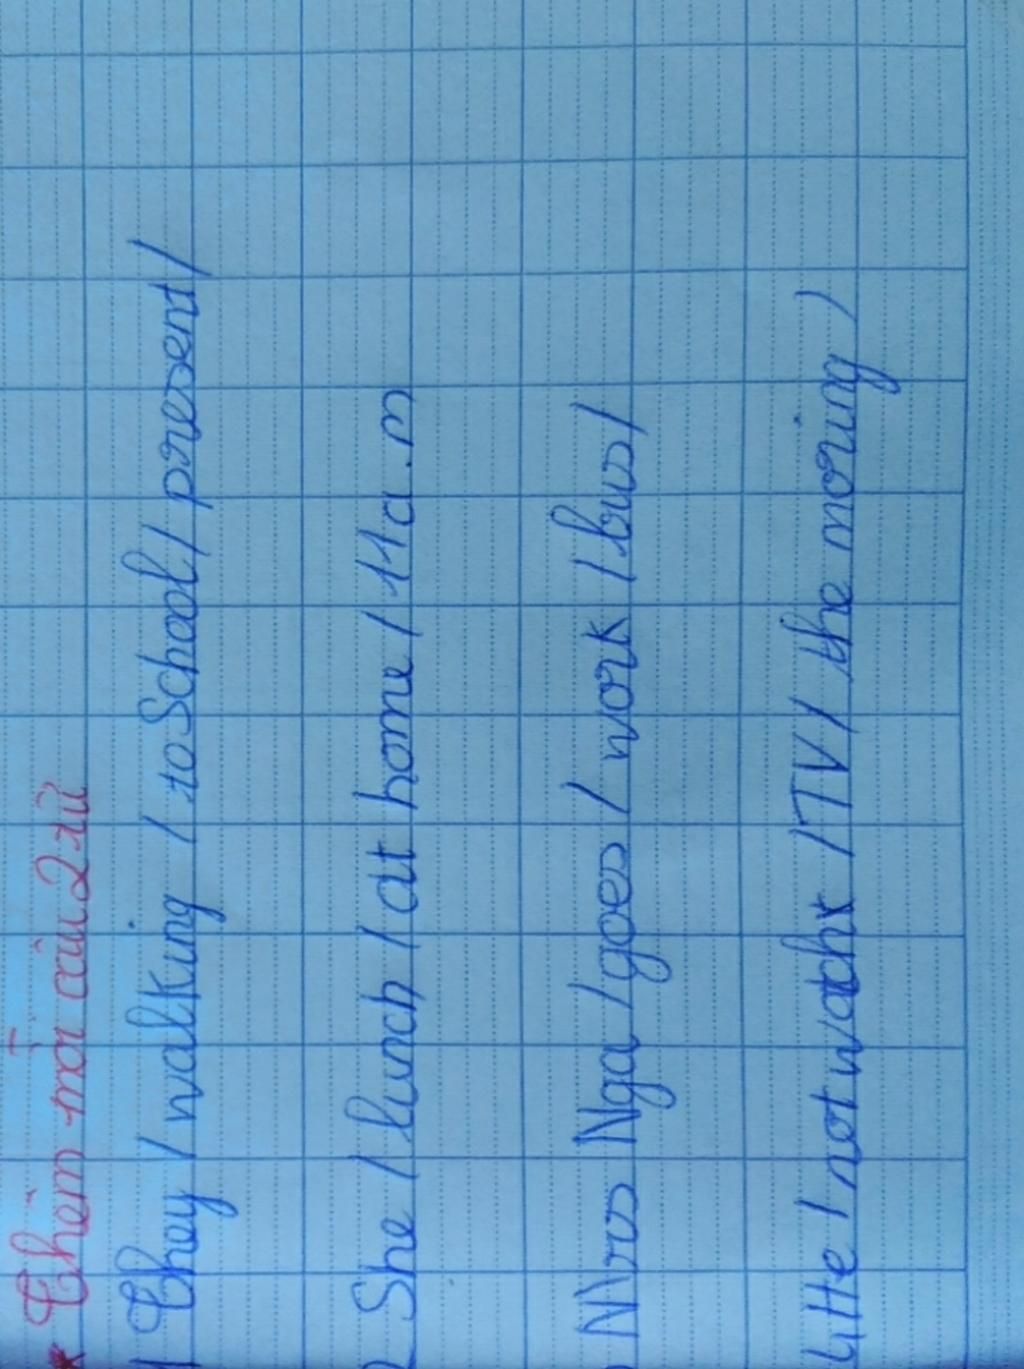 * Thêm mỗi câu 2 từ
1 They / walking / to School / present /
2 She / lunch / at home / 11 a.m
Mrs Nga / goes / work / bus /
He / not watch / TV / the moring /